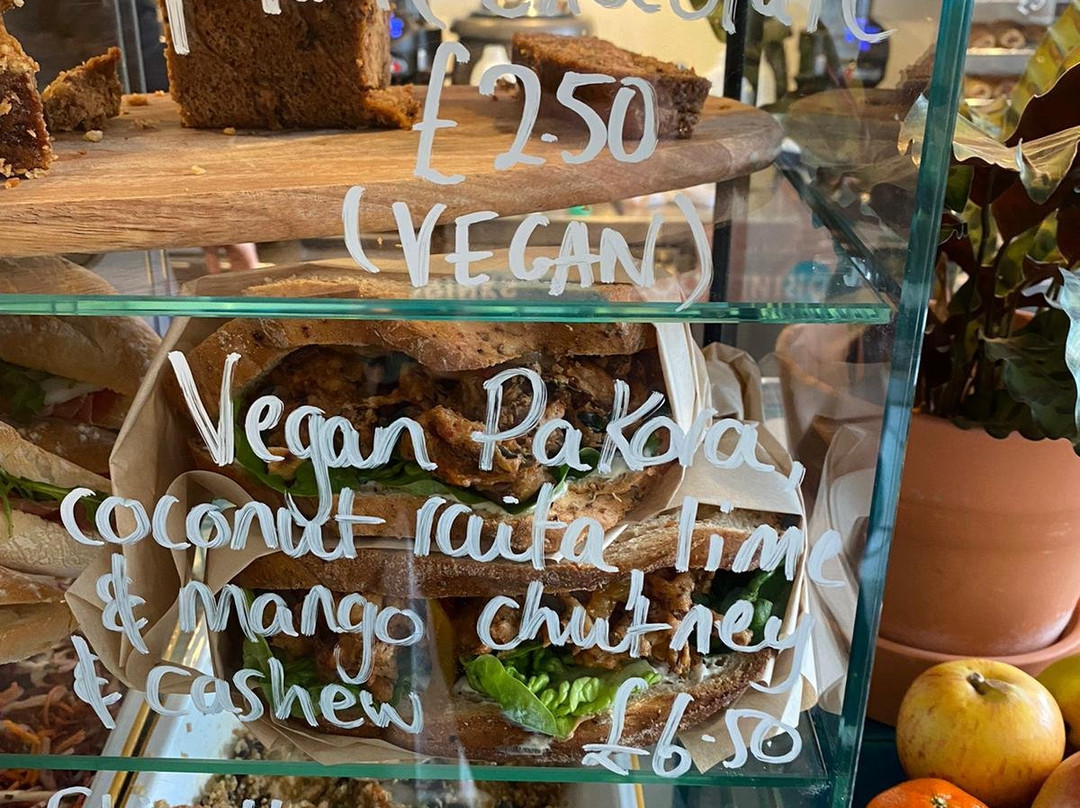 £2.50
(VEGAN)
Vegan Pakora,
coconut raita lime
& mango chutney
& cashew
£6.50